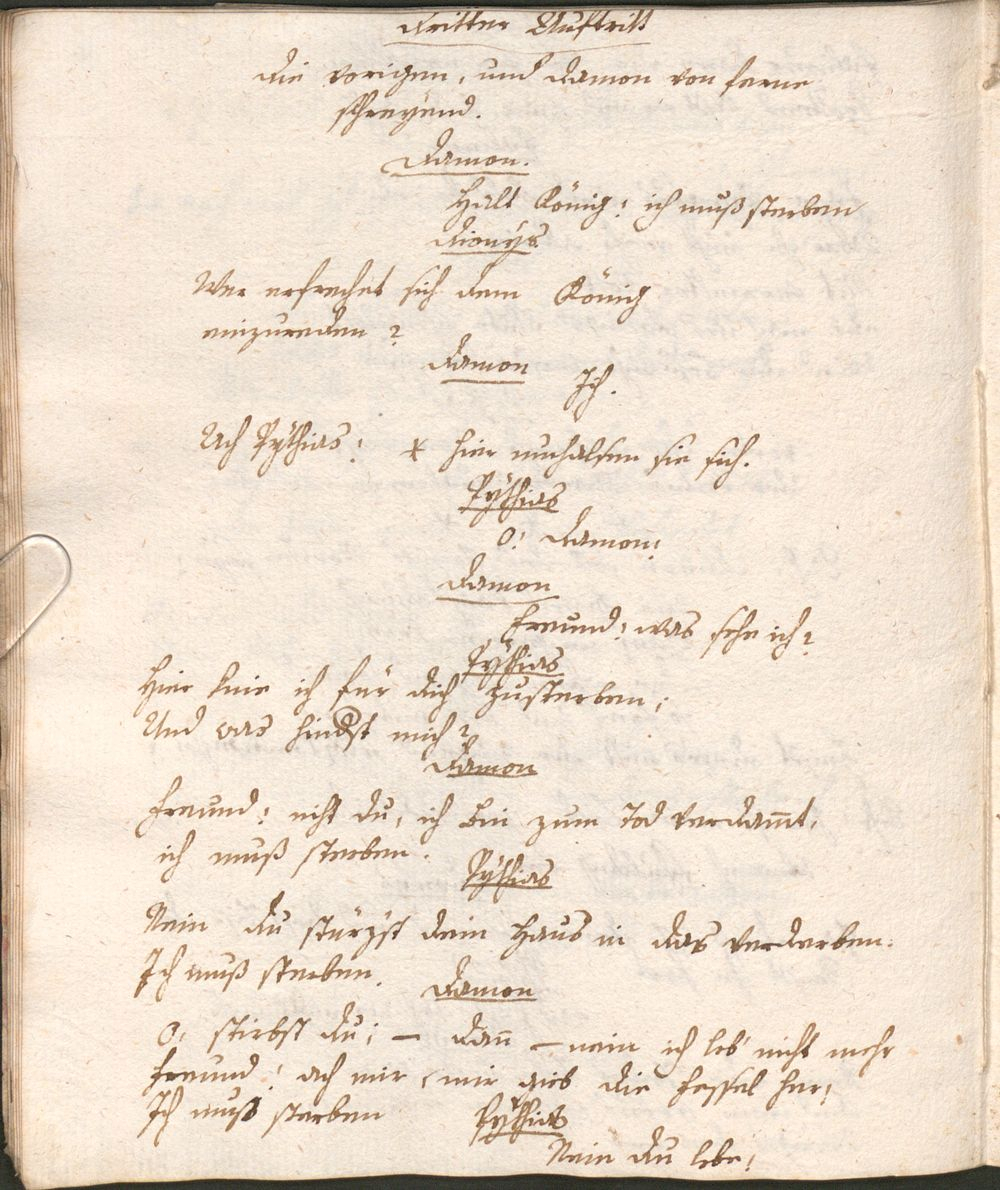 Dritter Auftritt
die vorigen, und Damon von ferne
schreyend.
Damon.
Halt König! ich muß sterben
Dionys
Wer erfrechet sich dem König
einzureden?
Damon
Ich.
Ach Pÿthias! + hier umhalsen sie sich.
Pÿthias
O! Damon!
Damon
Freund! was sehe ich?
Pÿthias
Hier knie ich für dich zusterben;
Und was hindst mich?
Damon
Freund! nicht du, ich bin zum Tod verdam̄t,
ich muß sterben.
Pÿthias
Nein du stürzst dein Haus in das verderben.
Ich muß sterben.
Damon
O! stirbst du; — dan̄ — nein ich leb nicht mehr
Freund! ach mir, mir gieb die Fessel her!
Ich muß sterben
Pÿthias
Nein du lebe!